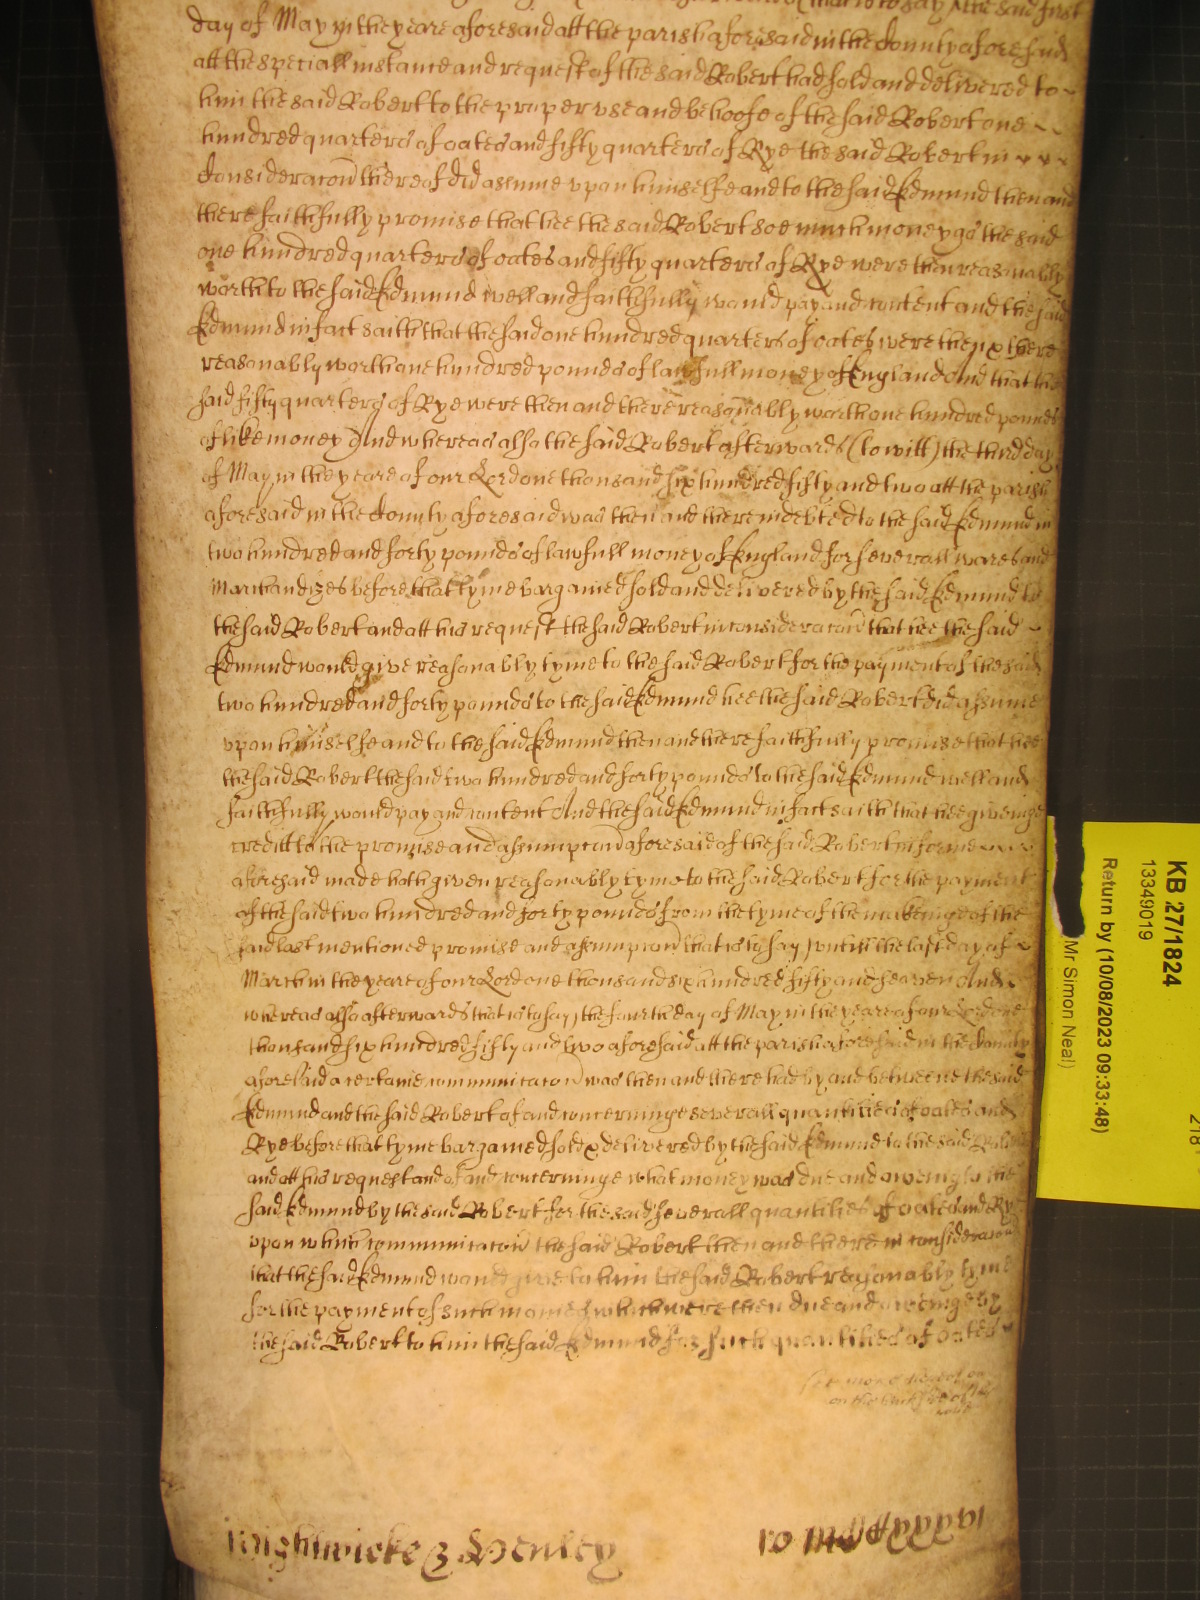 that is to say the said first
day of May in the yeare aforesaid att the parish aforesaid in the County aforesaid
att the speciall instance and request of the said Robert had sold and delivered to
him the said Robert to the proper vse and behoofe of the said Robert one
hundred quarters of oates and fifty quarters of Rye the said Robert in
Consideracon thereof did assume vpon himselfe and to the said Edmund then and
there faithfully promise that hee the said Robert soe much money as the said
one hundred quarters of oates and fifty quarters of Rye were then reasonably
worth to the said Edmund well and faithfully would pay and content and the said
Edmund in fact saith that the said one hundred quarters of oates were then & there
reasonably worth one hundred pounds of lawfull money of England And that the
said fifty quarters of Rye were then and there reasonably worth one hundred pounds
of like money And whereas also the said Robert afterwards (to witt) the third day
of May in the yeare of our Lord one thousand six hundred fifty and two att the parish
aforesaid in the County aforesaid was then and there indebted to the said Edmund in
two hundred and forty pounds of lawfull money of England for severall wares and
Marchandizes before that tyme bargained sold and delivered by the said Edmund to
the said Robert and att his request the said Robert in consideracon that hee the said
Edmund would give reasonably tyme to the said Robert for the payment of the said
two hundred and forty pounds to the said Edmund hee the said Robert did assume
vpon himselfe and to the said Edmund then and there faithfully promise that hee
the said Robert the said two hundred and forty pounds to the said Edmund well and
faithfully would pay and content And the said Edmund in fact saith that hee giveinge
creditt to the promise and assumpcon aforesaid of the said Robert in forme
aforesaid made hath given reasonably tyme to the said Robert for the payment
of the said two hundred and forty pounds from the tyme of the makeinge of the
said last mentioned promise and assumpcon that is to say vntill the last day of
March in the yeare of our Lord one thousand six hundred fifty and seaven And
whereas also afterwards that is to say the fourth day of May in the yeare of our Lord one
thousand six hundred fifty and two aforesaid att the parish aforesaid in the County
aforesaid a certaine communicacon was then and there had by and betweene the said
Edmund and the said Robert of and concerninge severall quantities of oates and
Rye before that tyme bargained sold & delivered by the said Edmund to the said Robert
and att his request and of and concerninge what money was due and oweinge to the
said Edmund by the said Robert for the said severall quantities of oates and Rye
vpon which communicacon the said Robert then and there in consideracon
that the said Edmund would give to him the said Robert reasonably tyme
for the payment of such monies which were then due and oweinge by
the said Robert to him the said Edmund for such quantities of oates
on the back side of this
Wightwicke & Henley
KB 27/1824
13349019
Return by (10/08/2023 09:33:48)
Mr Simon Neal)